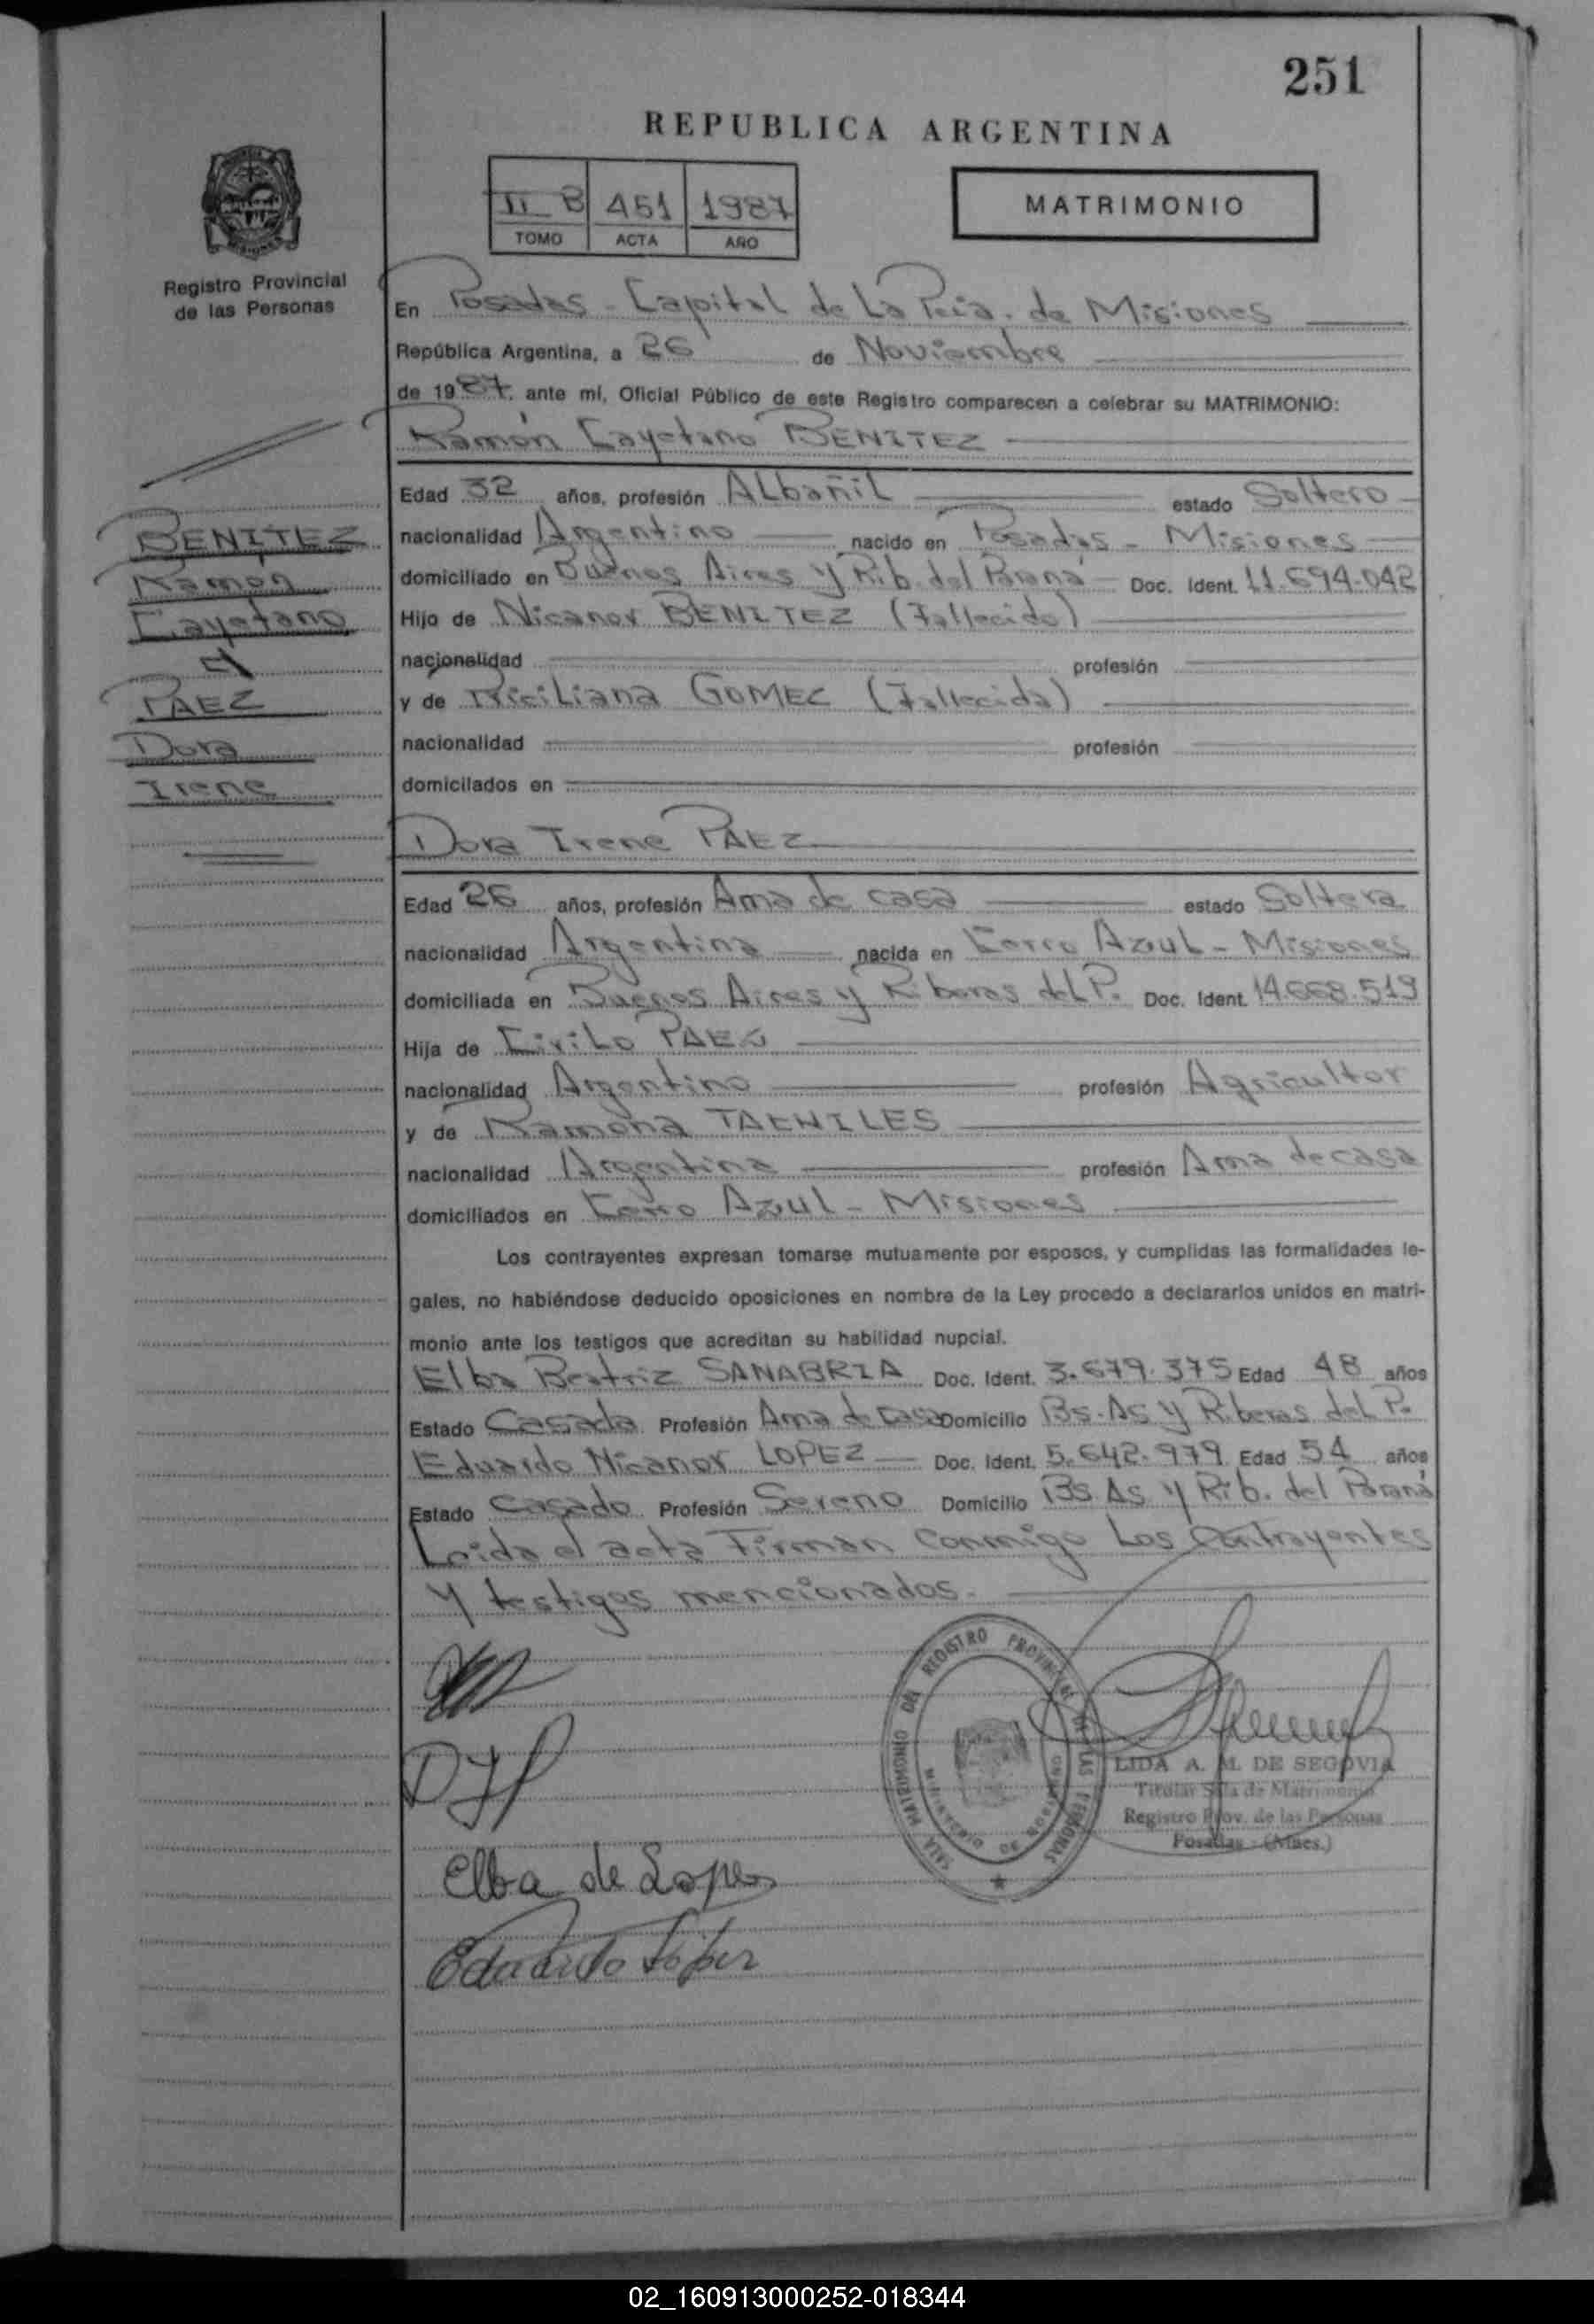 251
REPUBLICA ARGENTINA
II B 451 1987
TOMO ACTA AÑO
MATRIMONIO
Registro Provincial
de las Personas
En Posadas - Capital de La Pcia. de Misiones
República Argentina, a 26 de Noviembre
de 1987. ante mí, Oficial Público de este Registro comparecen a celebrar su MATRIMONIO:
Ramón Cayetano BENITEZ
Edad 32 años, profesión Albañil estado Soltero
nacionalidad Argentino nacido en Posadas - Misiones
domiciliado en Buenos Aires y Rib. del Paraná Doc. Ident. 11.694.042
Hijo de Nicanor BENITEZ (Fallecido)
nacionalidad profesión
y de GOMEZ (Fallecida)
nacionalidad profesión
domicilados en
BENITEZ
Ramón
Cayetano
PAEZ
Dora
Irene
Dora Irene PAEZ
Edad 26 años, profesión Ama de casa estado Soltera
nacionalidad Argentina nacida en Cerro Azul - Misiones
domiciliada en Buenos Aires y Riberas del P. Doc. Ident. 14.668.519
Hija de Cirilo PAEZ
nacionalidad Argentino profesión Agricultor
y de Ramona
nacionalidad Argentina profesión Ama de casa
domiciliados en Cerro Azul - Misiones
Los contrayentes expresan tomarse mutuamente por esposos, y cumplidas las formalidades le-
gales, no habiéndose deducido oposiciones en nombre de la Ley procedo a declararlos unidos en matri-
monio ante los testigos que acreditan su habilidad nupcial.
Elba Beatriz SANABRIA Doc. Ident. 3.679.375 Edad 48 años
Estado Casada Profesión Ama de casa Domicilio Bs. As y Riberas del P.
Eduardo Nicanor LOPEZ Doc. Ident. 5.642.979 Edad 54 años
Estado Casado Profesión Sereno Domicilio Bs As y Rib. del Paraná
Leida el acta Firman conmigo Los Contrayentes
y testigos mencionados.
SALA MATRIMONIO DEL REGISTRO PROVINCIAL DE LAS PERSONAS
MINISTERIO DE GOBIERNO
LIDA A. M. DE SEGOVIA
Titular Sala de Matrimonio
Registro Prov. de las Personas
Posadas - (Mnes.)
Elba de Lopez
Eduardo López
02_160913000252-018344